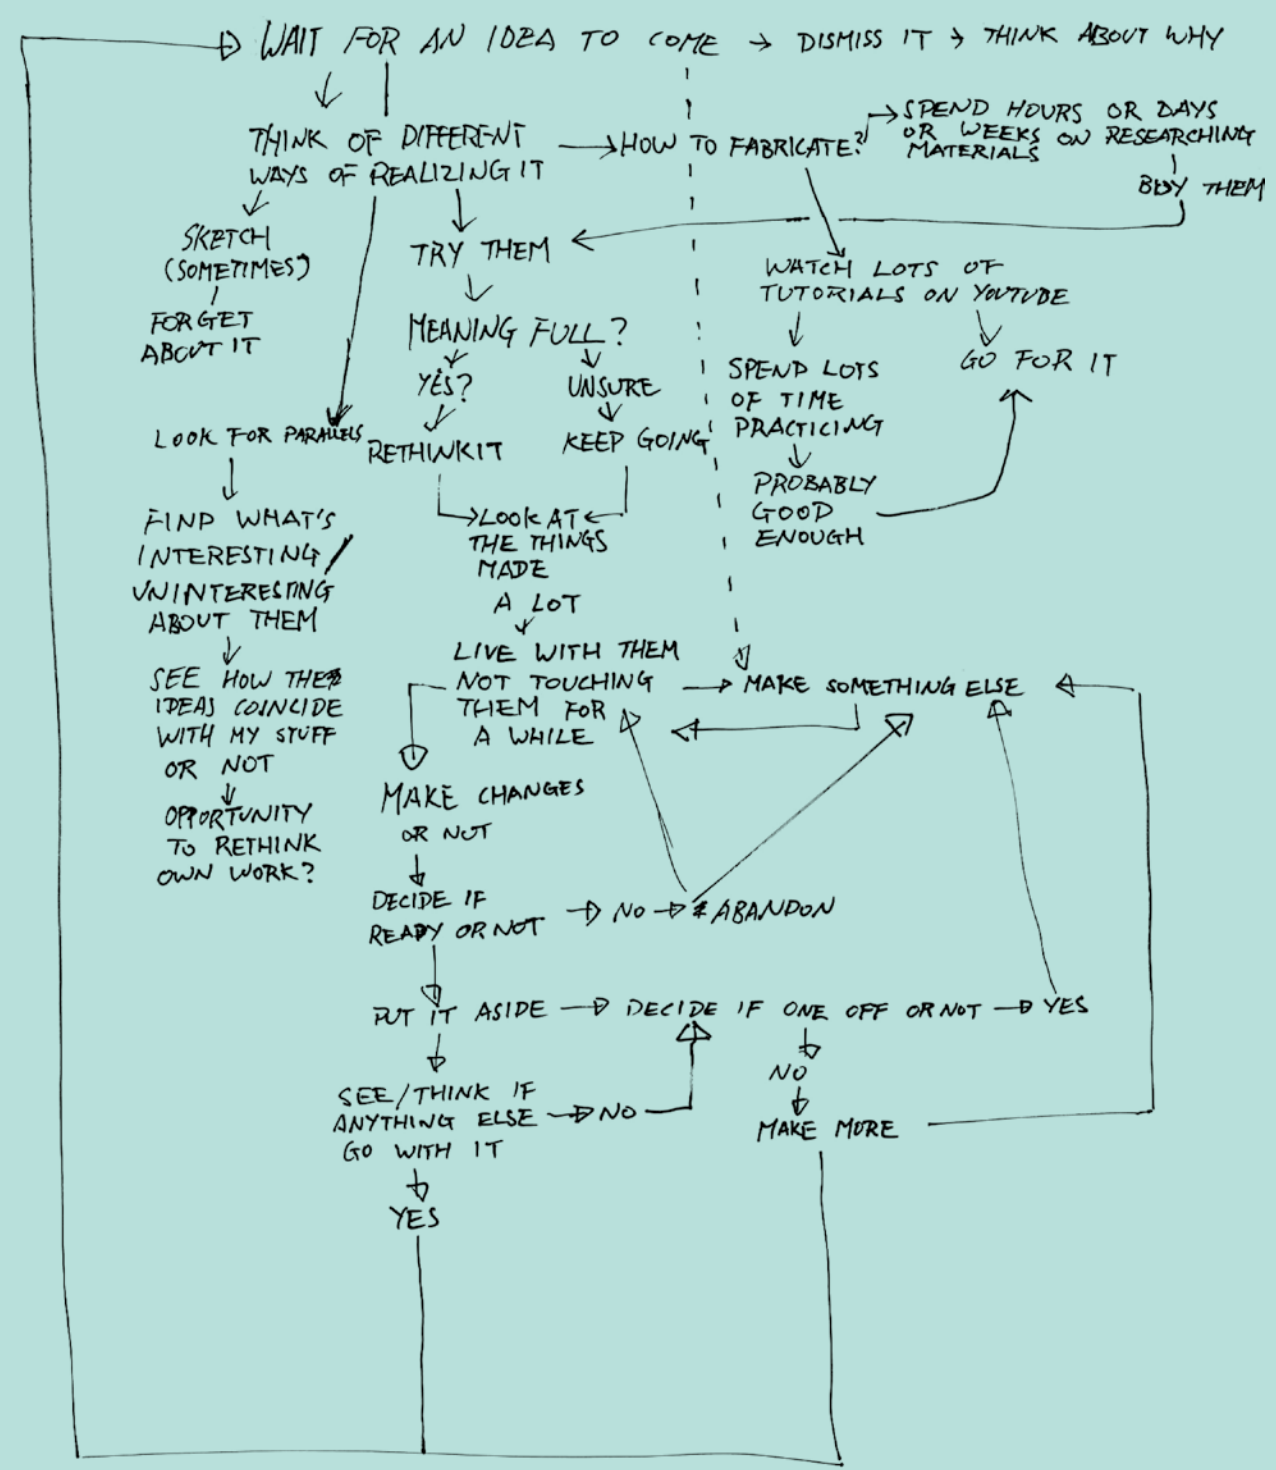 WAIT FOR AN IDEA TO COME → DISMISS IT → THINK ABOUT WHY
THINK OF DIFFERENT
WAYS OF REALIZING IT
HOW TO FABRICATE?
SPEND HOURS OR DAYS
OR WEEKS ON RESEARCHING
MATERIALS
BUY THEM
SKETCH
(SOMETIMES)
FORGET
ABOUT IT
TRY THEM
MEANING FULL?
YES?
UNSURE
RETHINK IT
KEEP GOING
WATCH LOTS OF
TUTORIALS ON YOUTUBE
SPEND LOTS
OF TIME
PRACTICING
GO FOR IT
PROBABLY
GOOD
ENOUGH
LOOK FOR PARALLELS
FIND WHAT'S
INTERESTING/
UNINTERESTING
ABOUT THEM
SEE HOW THE
IDEAS COINCIDE
WITH MY STUFF
OR NOT
OPPORTUNITY
TO RETHINK
OWN WORK?
LOOK AT
THE THINGS
MADE
A LOT
LIVE WITH THEM
NOT TOUCHING
THEM FOR
A WHILE
MAKE SOMETHING ELSE
MAKE CHANGES
OR NOT
DECIDE IF
READY OR NOT
NO
ABANDON
PUT IT ASIDE
DECIDE IF ONE OFF OR NOT
YES
NO
MAKE MORE
SEE/THINK IF
ANYTHING ELSE
GO WITH IT
NO
YES